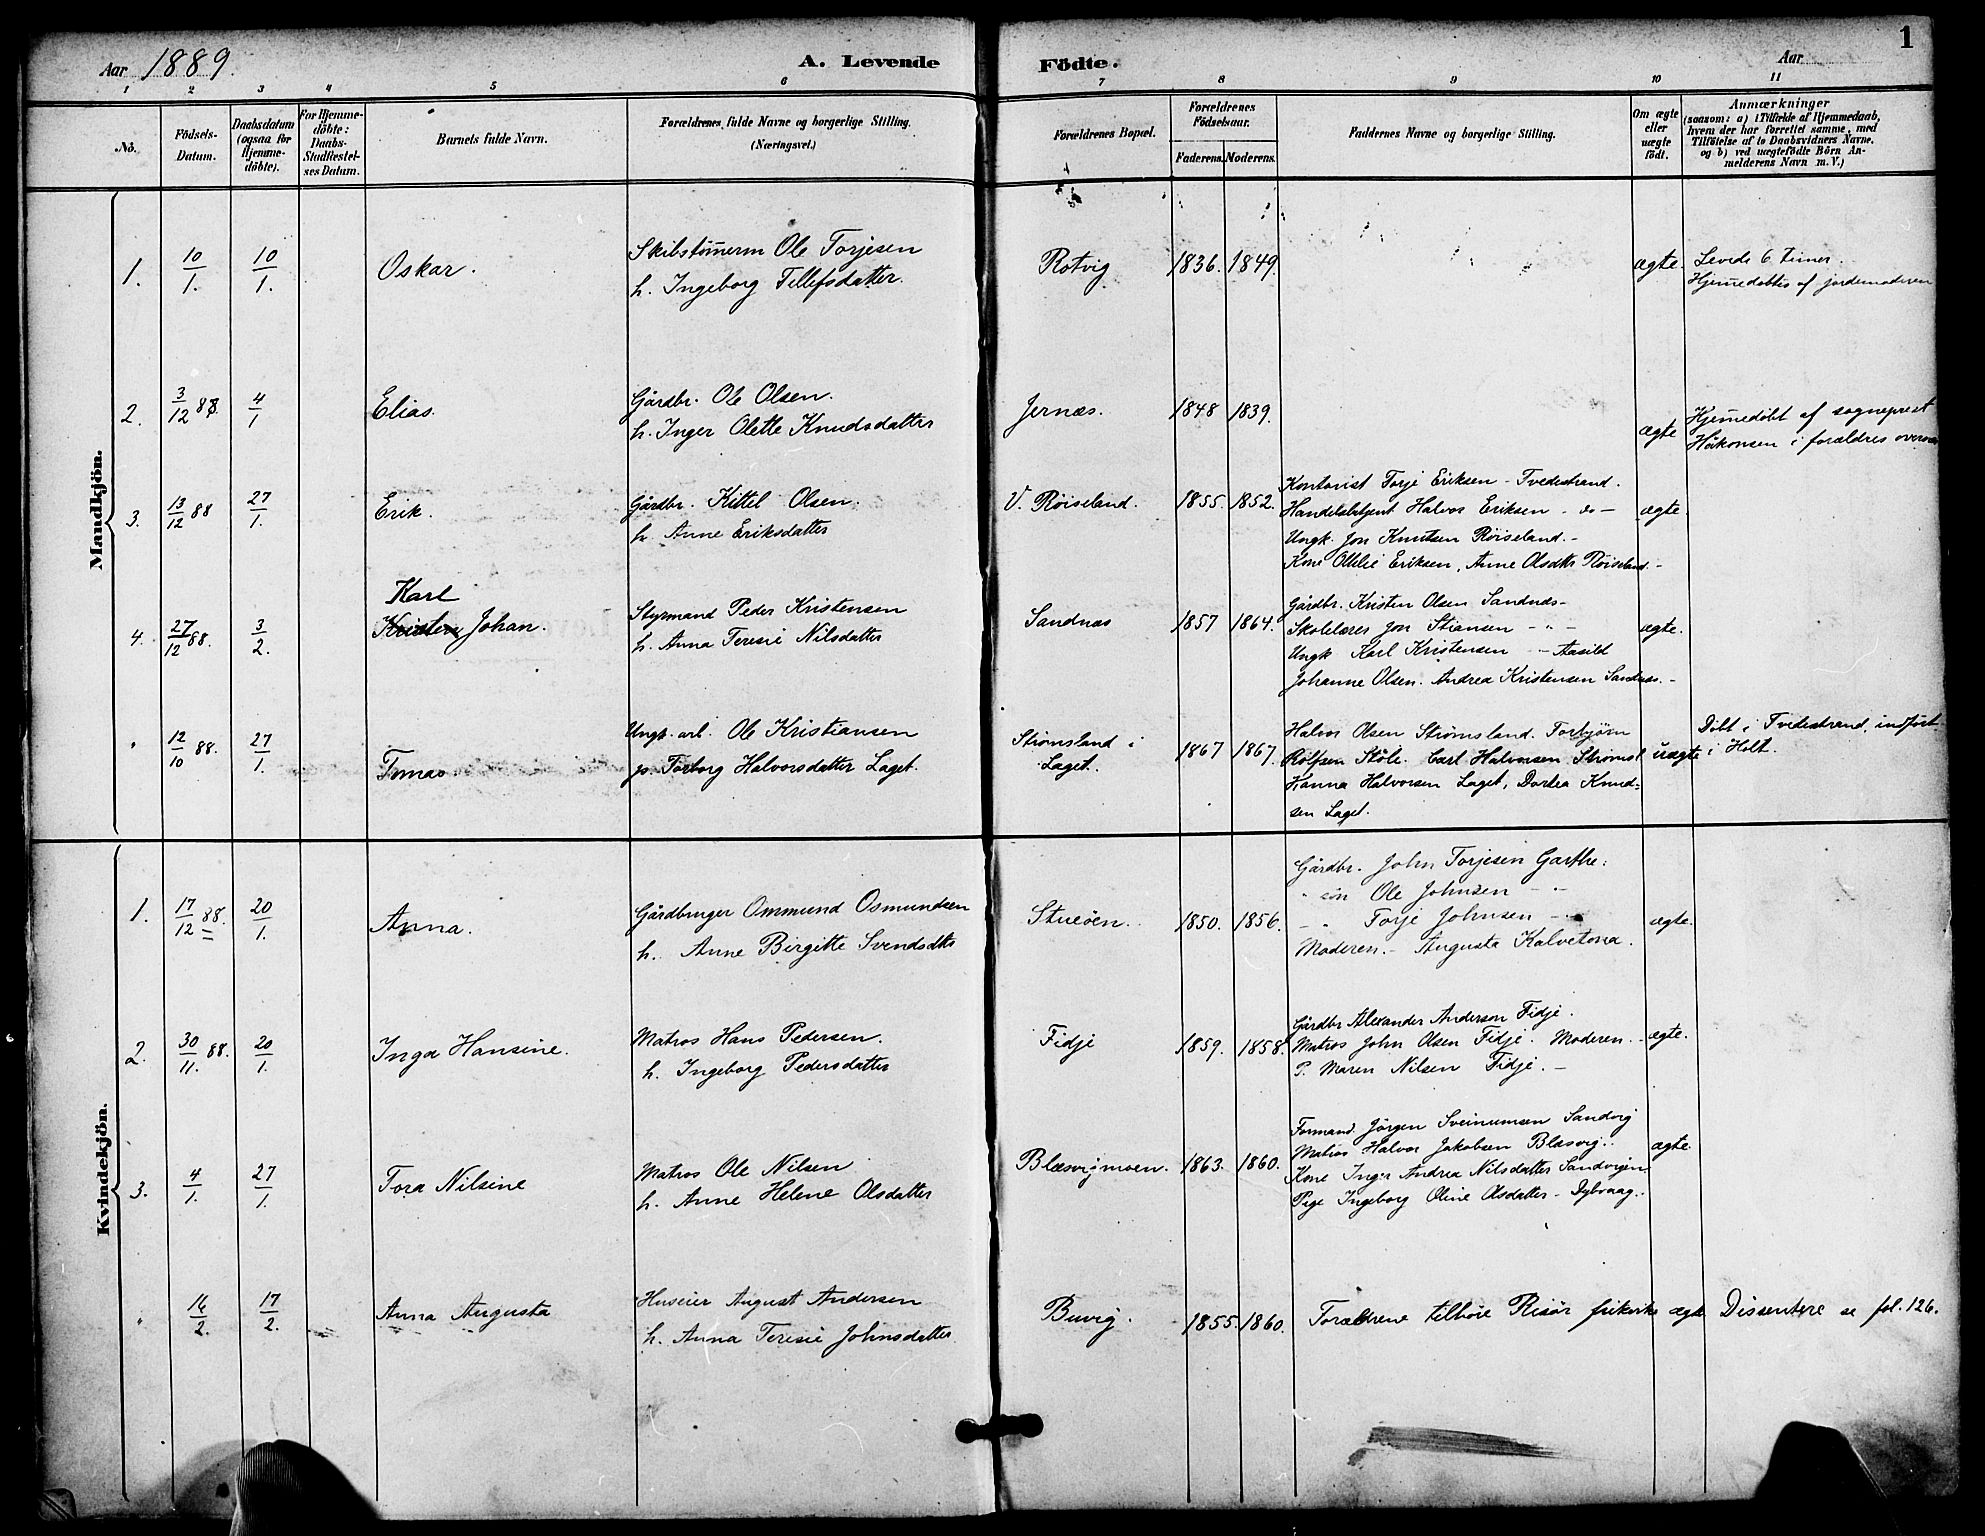 1
Aar 1889.
A. Levende Födte.
Aar
1 2 3 4 5 6 7 8 9 10 11
No.
Födsels-Datum.
Daabsdatum (ogsaa for Hjemme-döbte).
For Hjemme-döbte: Daabs-Stadfæstel-ses Datum.
Barnets fulde Navn.
Forældrenes fulde Navne og borgerlige Stilling.
(Næringsvei.)
Forældrenes Bopæl.
Forældrenes Födselsaar.
Faderens. Moderens.
Faddernes Navne og borgerlige Stilling.
Om ægte eller uægte födt.
Anmærkninger
(saasom: a) i Tilfælde af Hjemmedaab,
hvem der har forrettet samme, med
Tilföielse af to Daabsvidners Navne.
og b) ved uægtefödte Börn An-
melderens Navn m. V.)
Mandkjön.
1. 10/1. 10/1. Oskar.
Skibstømerm Ole Torjesen
h. Ingeborg Tellefsdatter.
Rotvig 1836. 1849. ægte.
Levede 6 timer.
Hjemedøbtes af jordemoderen
2. 3/12 88. 4/1 Elias.
Gårdbr. Ole Olsen.
h. Inger Olette Knudsdatter
Jernæs. 1848 1839. ægte
Hjemedöbt af sogneprest
Håkonsen i forældres overvær
3. 13/12 88 27/1. Erik.
Gårdbr. Kittel Olsen.
h. Anne Eriksdatter
V. Röiseland. 1855. 1852.
Kontorist Torje Eriksen - Tvedestrand.
Handelsbetjent Halvor Eriksen - do -
Ungk. Jon Knutsen Röiseland. -
Kone Ottilie Eriksen, Anne Olsdtr Röiseland. -
ægte.
4. 27/12 88. 3/2.
Karl
Kristen Johan.
Styrmand Peder Kristensen
h. Anna Teresie Nilsdatter
Sandnæs 1857 1864.
Gårdbr. Kristen Olsen Sandnæs -
Skolelærer Jon Stiansen - " -
Ungk Karl Kristensen - Aasild
Johanne Olsen. Andrea Kristensen Sandnæs. -
ægte.
" 12/10 88. 27/1. Tomas
Ungk. arb. Ole Kristiansen
p. Torborg Halvorsdatter Laget.
Strömsland i
Laget.
1867 1867.
Halvor Olsen Strömsland. Torbjörn
Rolfsen Stöle. Carl Halvorsen Strömsl
Hanna Halvorsen Laget, Dortea Knud-
sen Laget.
uægte
Döbt i Tvedestrand, indfört
i Holt.
Kvindekjön.
1. 17/12 88. 20/1. Anna.
Gårdbruger Ommund Osmundsen
h. Anne Birgitte Svendsdtr
Stueöen. 1850. 1856.
Gårdbr. John Torjesen Garthe.
" sön Ole Johnsen - "
- " Torje Johnsen - "
Moderen. - Augusta Kalvetona.
ægte.
2. 30/11. 88. 20/1. Inga Hansine.
Matros Hans Pedersen.
h. Ingeborg Pedersdatter
Fidje 1859. 1858.
Gårdbr Alexander Anderson Fidje.
Matros John Olsen Fidje. Moderen.
P. Maren Nilsen Fidje. -
ægte.
3. 4/1. 27/1. Tora Nilsine
Matros Ole Nilsen
h. Anne Helene Olsdatter
Blæsvigmoen. 1863. 1860.
Formand. Jörgen Sveinumsen Sandvig
Matros Halvor Jakobsen Blæsvig.
Kone Inger Andrea Nilsdatter Sandvigen
Pige Ingeborg Oline Olsdatter - Dybvaag.
ægte.
" 16/2. 17/2. Anna Augusta
Huseier August Andersen
h. Anna Teresie Johnsdatter
Buvig. 1855. 1860.
Forældrene tilhöre Risör frikirke ægte Dissentere se fol. 126.